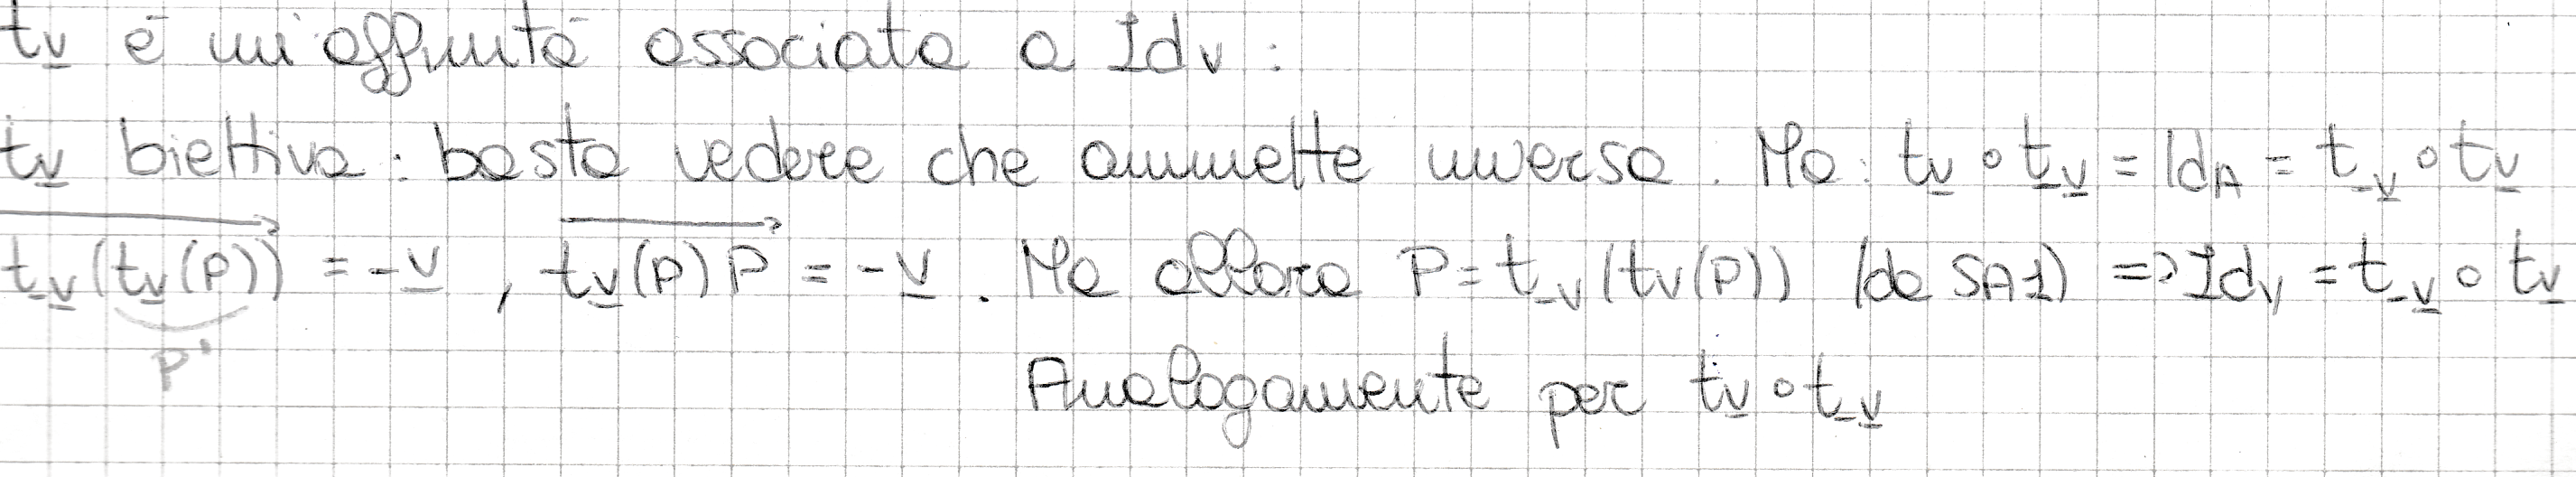 t_v è un'affinità associata a Id_V :
t_v biettiva : basta vedere che ammette inversa . Ma : t_v ∘ t_-v = Id_A = t_-v ∘ t_v
t_-v(t_v(P)) = -v , t_v(P)P = -v . Ma allora P = t_-v(t_v(P)) (da SA1) => Id_V = t_-v ∘ t_v
P'
Analogamente per t_v ∘ t_-v